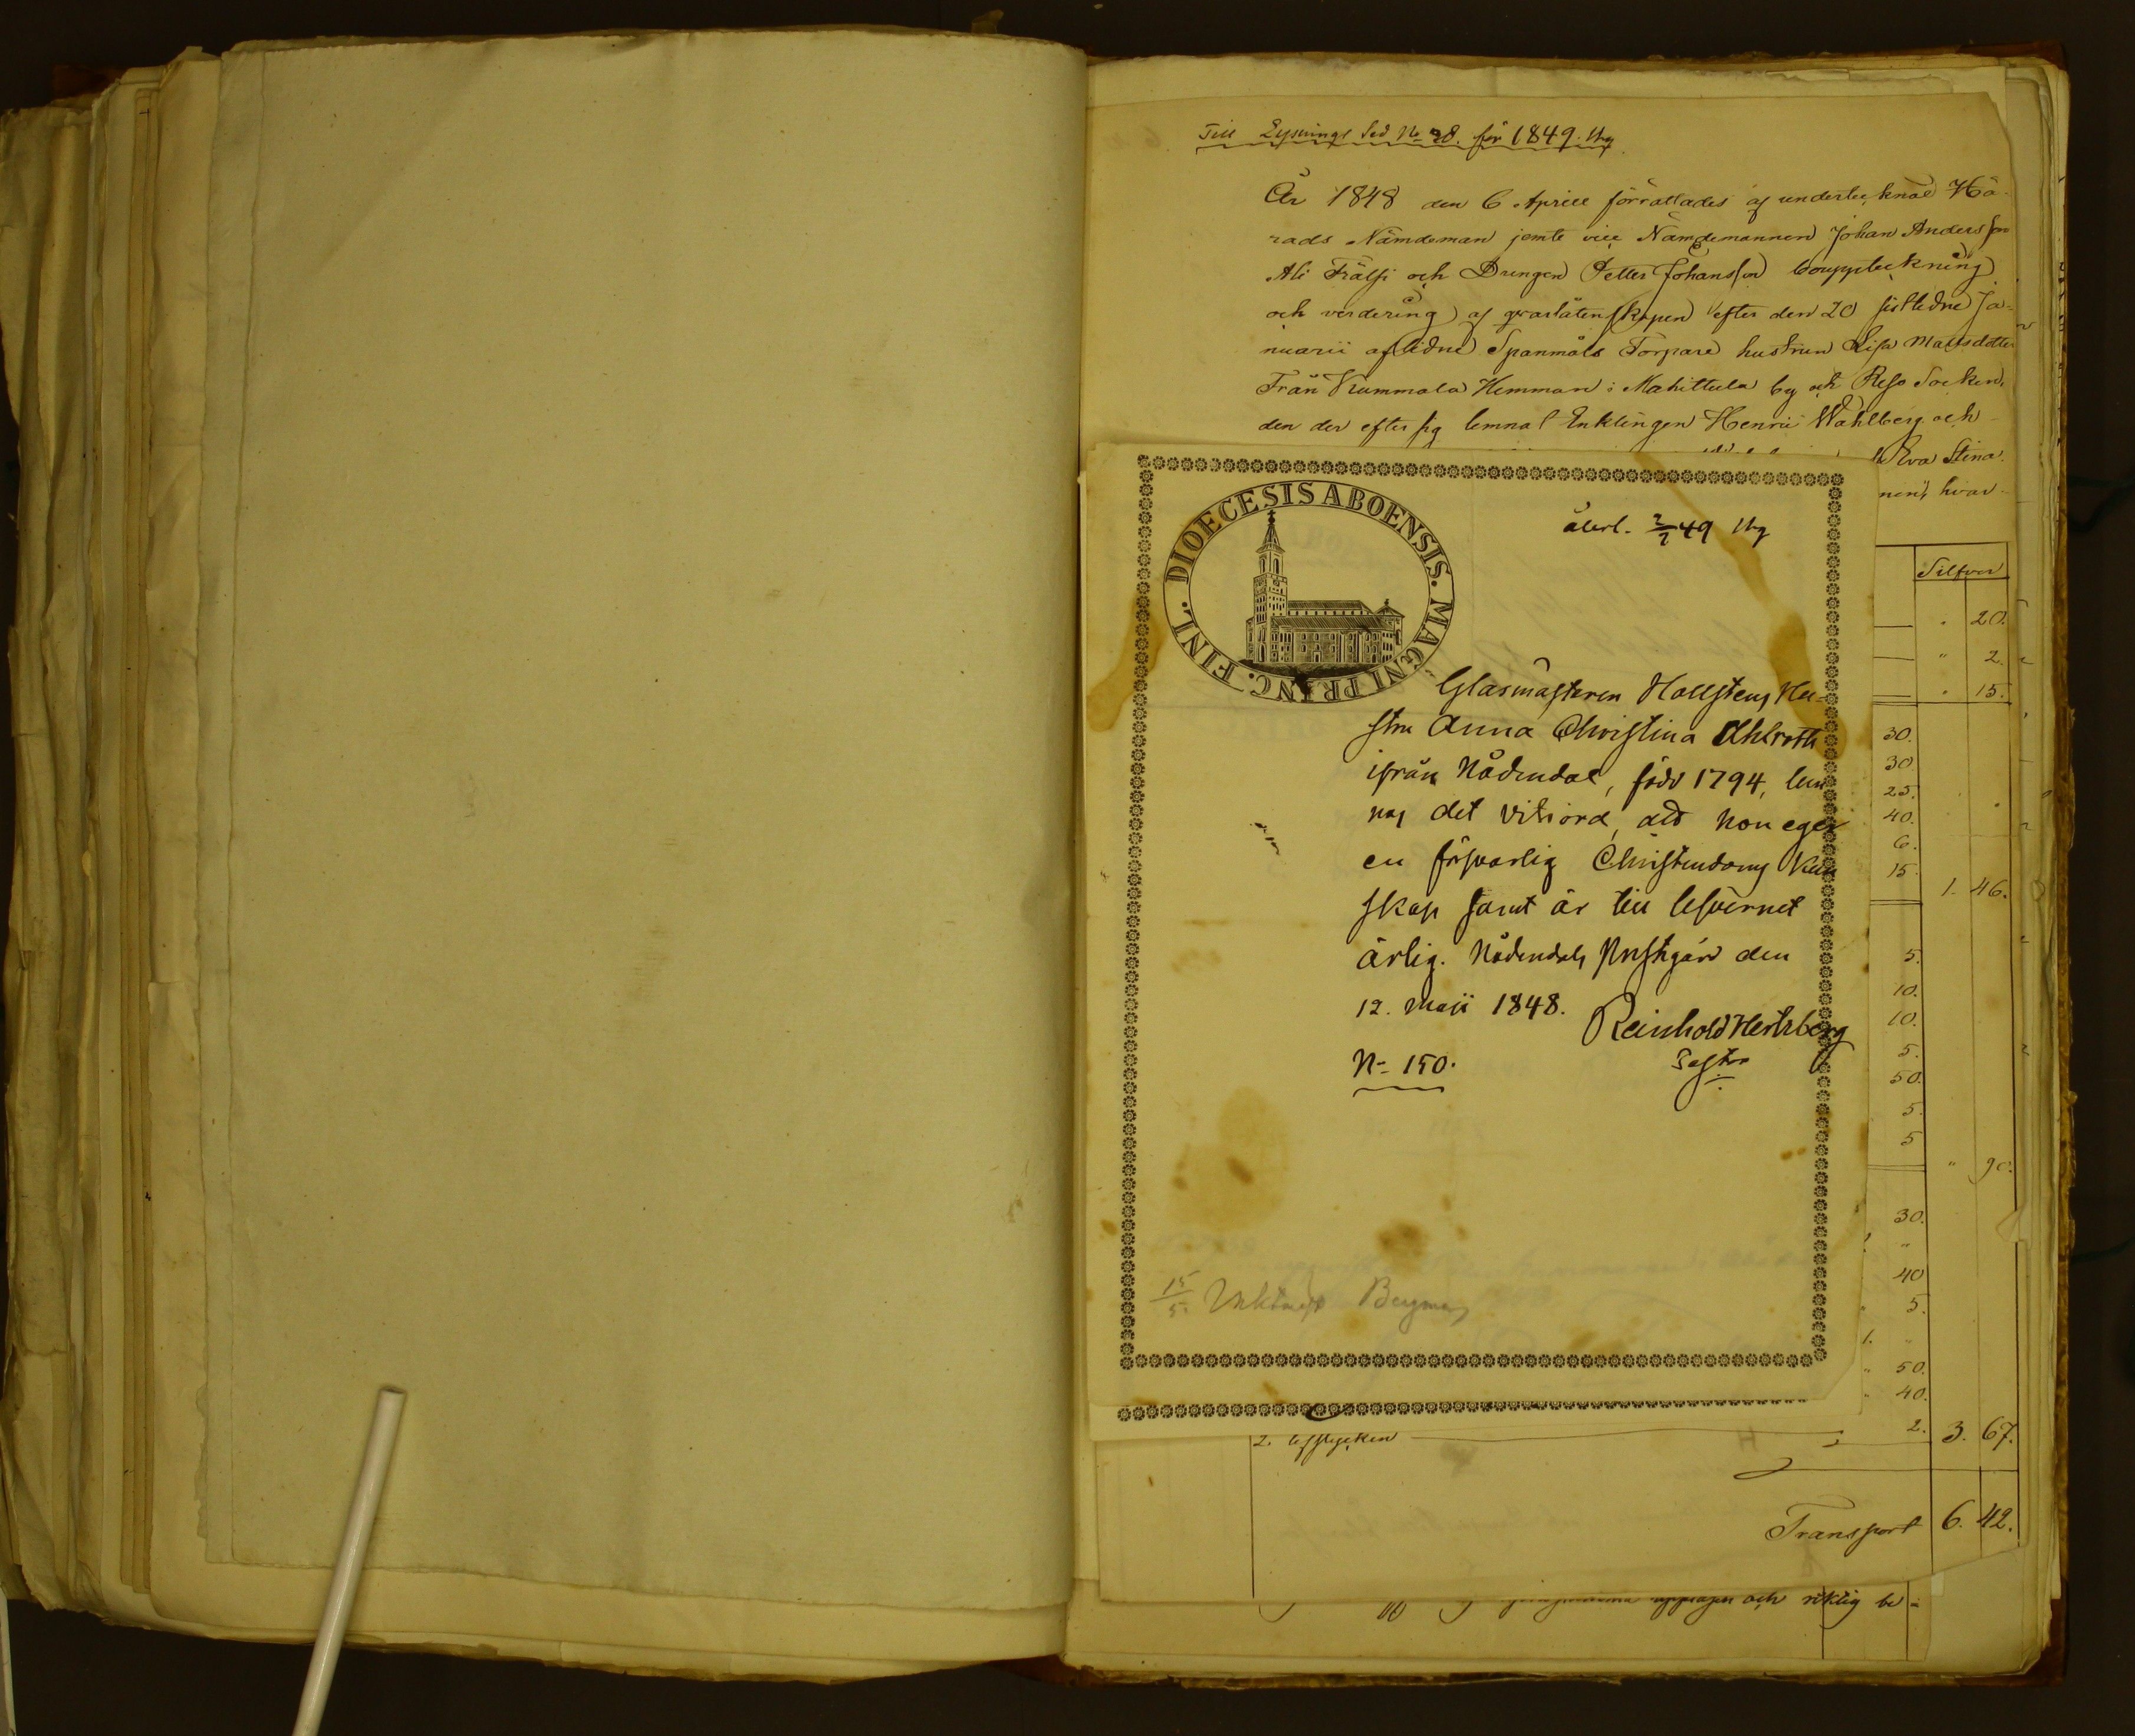 Till Lysnings Sed No 28. för 1849.
År 1848 den 6 Aprill förrättades af undertecknad Hä-
rads Nämdeman jemte vice Nämdemannen Johan Andersson
Ali Frälsi och Drengen Petter Johansson bouppteckning
och värdering af qvarlåtenskapen efter den 20 sistledne Ja-
nuarii aflidne Spanmåls Torpare hustrun Lisa Mattsdotter
Från Kummala Hemman i Mahittula by och Reso Socken,
den der efter sig lemnat Enklingen Henric Wahlberg och
Eva Stina
hvar
DIOECESIS ABOENSIS. MAGNI PRINC. FINL.
återl. 2/7 49
Glasmästaren Hollstens Hu-
stru Anna Christina Ahlroth
ifrån Nådendal, född 1794, lem
nas det vitsord, att hon eger
en försvarlig Christendoms Kun
skap samt är till lefvernet
ärlig. Nådendals Prestgård den
12. Maji 1848.
Reinhold Hertzberg
Pastor
No 150.
15/5 Bergman
Silfver
" 20.
" 2.
" 15.
30.
30
25.
40.
6.
15.
1. 46.
5.
10.
10.
5.
50.
5.
5
" 90.
30.
"
40
5.
1. "
" 50.
" 40.
2. 3. 67.
2. lifstycken
Transport 6. 42.
och riktig be-